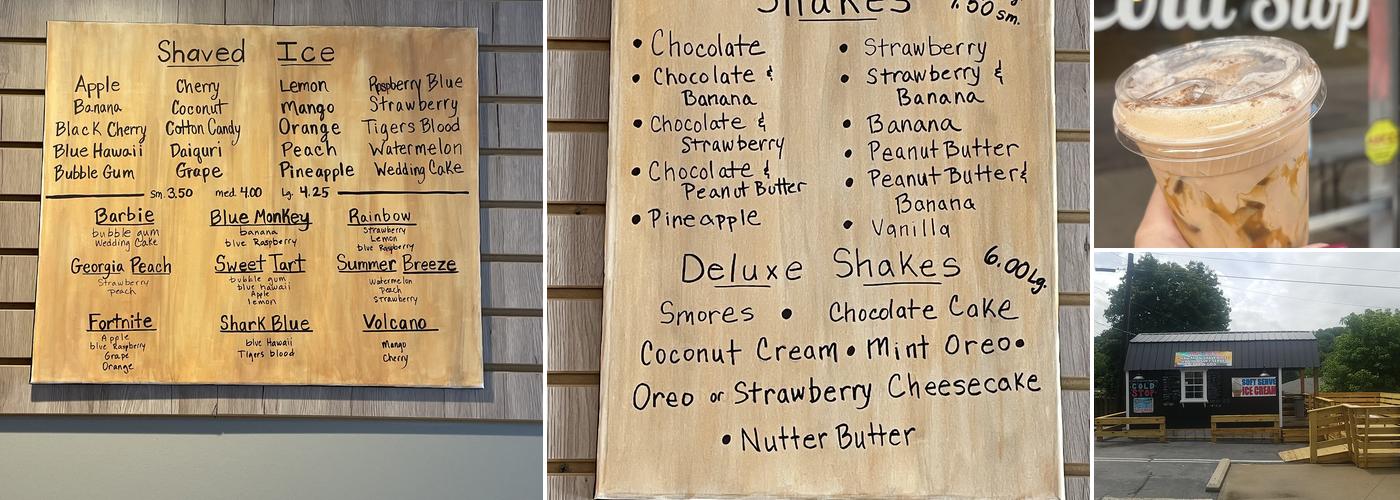 Shaved Ice
Apple Cherry Lemon Raspberry Blue
Banana Coconut Mango Strawberry
Black Cherry Cotton Candy Orange Tigers Blood
Blue Hawaii Daiquri Peach Watermelon
Bubble Gum Grape Pineapple Wedding Cake
Sm. 3.50 med. 4.00 Lg. 4.25
Barbie Blue Monkey Rainbow
bubble gum
Wedding Cake
banana
blue Raspberry
Strawberry
Lemon
blue Raspberry
Georgia Peach Sweet Tart Summer Breeze
Strawberry
peach
bubble gum
blue hawaii
Apple
lemon
Watermelon
Peach
Strawberry
Fortnite Shark Blue Volcano
Apple
blue Raspberry
Grape
Orange
blue Hawaii
Tigers blood
Mango
Cherry
Shakes
.50 sm.
• Chocolate
• Chocolate &
Banana
• Chocolate &
Strawberry
• Chocolate &
Peanut Butter
• Pineapple
• Strawberry
• Strawberry &
Banana
• Banana
• Peanut Butter
• Peanut Butter &
Banana
• Vanilla
Deluxe Shakes 6.00 Lg.
Smores • Chocolate Cake
Coconut Cream • Mint Oreo •
Oreo or Strawberry Cheesecake
• Nutter Butter
Cold Stop
COLD
STOP
SOFT SERVE
ICE CREAM